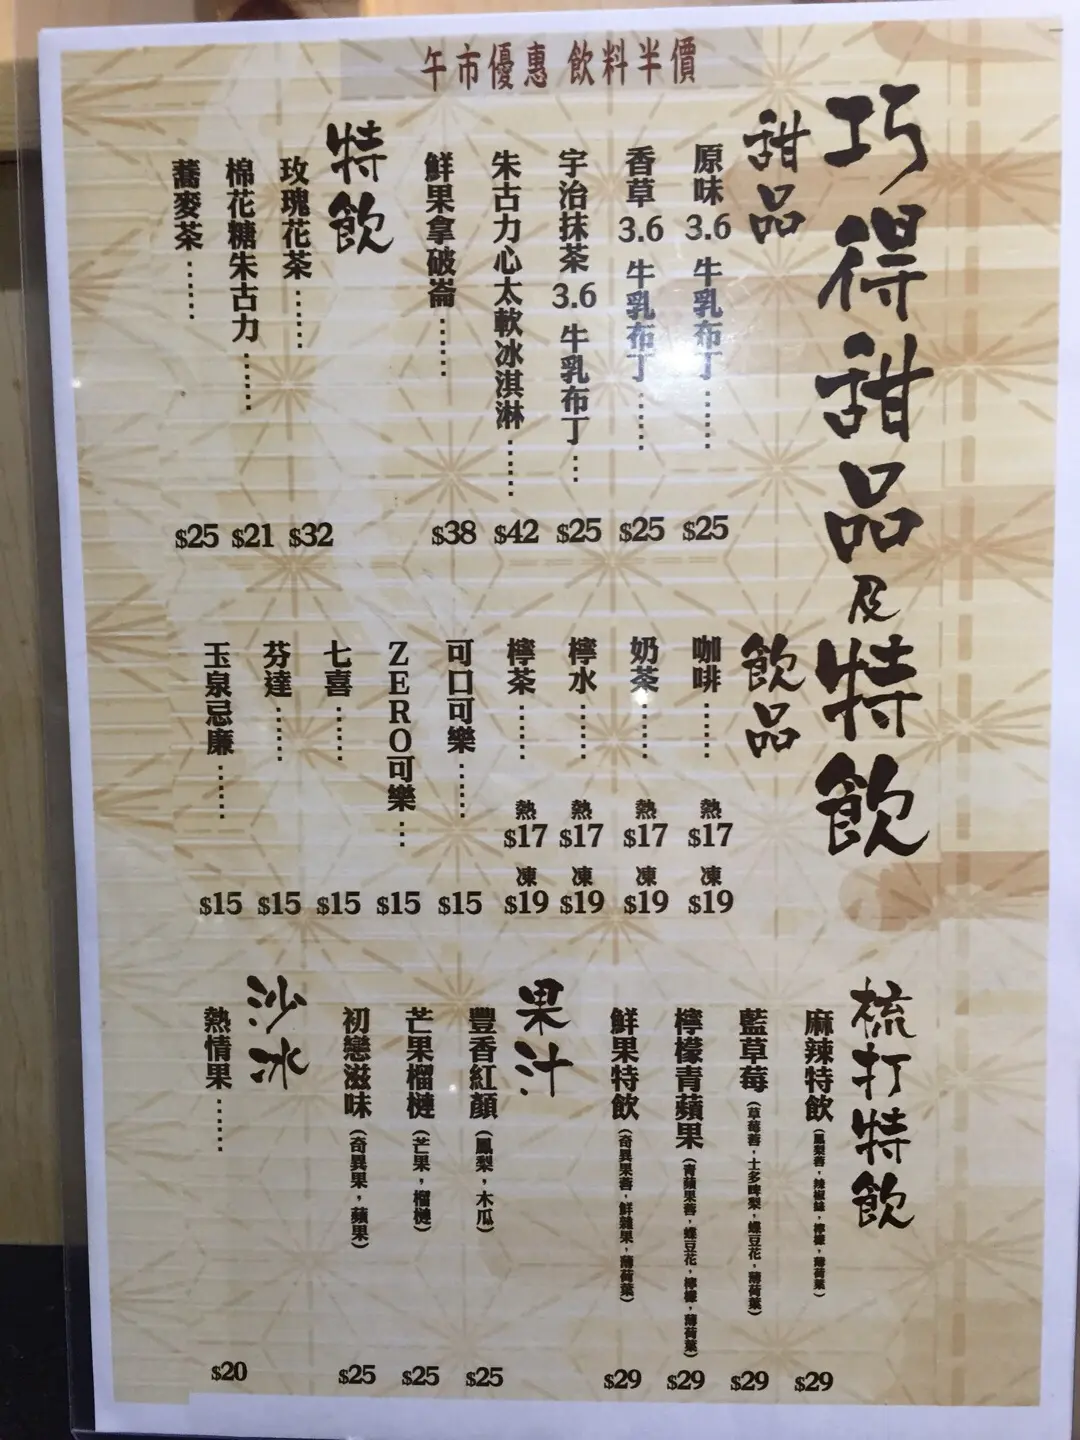 午市優惠 飲料半價
巧得甜品及特飲
甜品
原味 3.6 牛乳布丁 …… $25
香草 3.6 牛乳布丁 …… $25
宇治抹茶 3.6 牛乳布丁 … $25
朱古力心太軟冰淇淋 …… $42
鮮果拿破崙 …… $38
特飲
玫瑰花茶 …… $32
棉花糖朱古力 …… $21
蕎麥茶 …… $25
飲品
咖啡 …… 熱 $17 凍 $19
奶茶 …… 熱 $17 凍 $19
檸水 …… 熱 $17 凍 $19
檸茶 …… 熱 $17 凍 $19
可口可樂 …… $15
ZERO可樂 … $15
七喜 …… $15
芬達 …… $15
玉泉忌廉 …… $15
梳打特飲
麻辣特飲 (鳳梨蓉，辣椒絲，檸檬，薄荷葉) $29
藍草莓 (草莓蓉，士多啤梨，蝶豆花，薄荷葉) $29
檸檬青蘋果 (青蘋果蓉，蝶豆花，檸檬，薄荷葉) $29
鮮果特飲 (奇異果蓉，鮮雜果，薄荷葉) $29
果汁
豐香紅顏 (鳳梨，木瓜) $25
芒果榴槤 (芒果，榴槤) $25
初戀滋味 (奇異果，蘋果) $25
沙冰
熱情果 …… $20